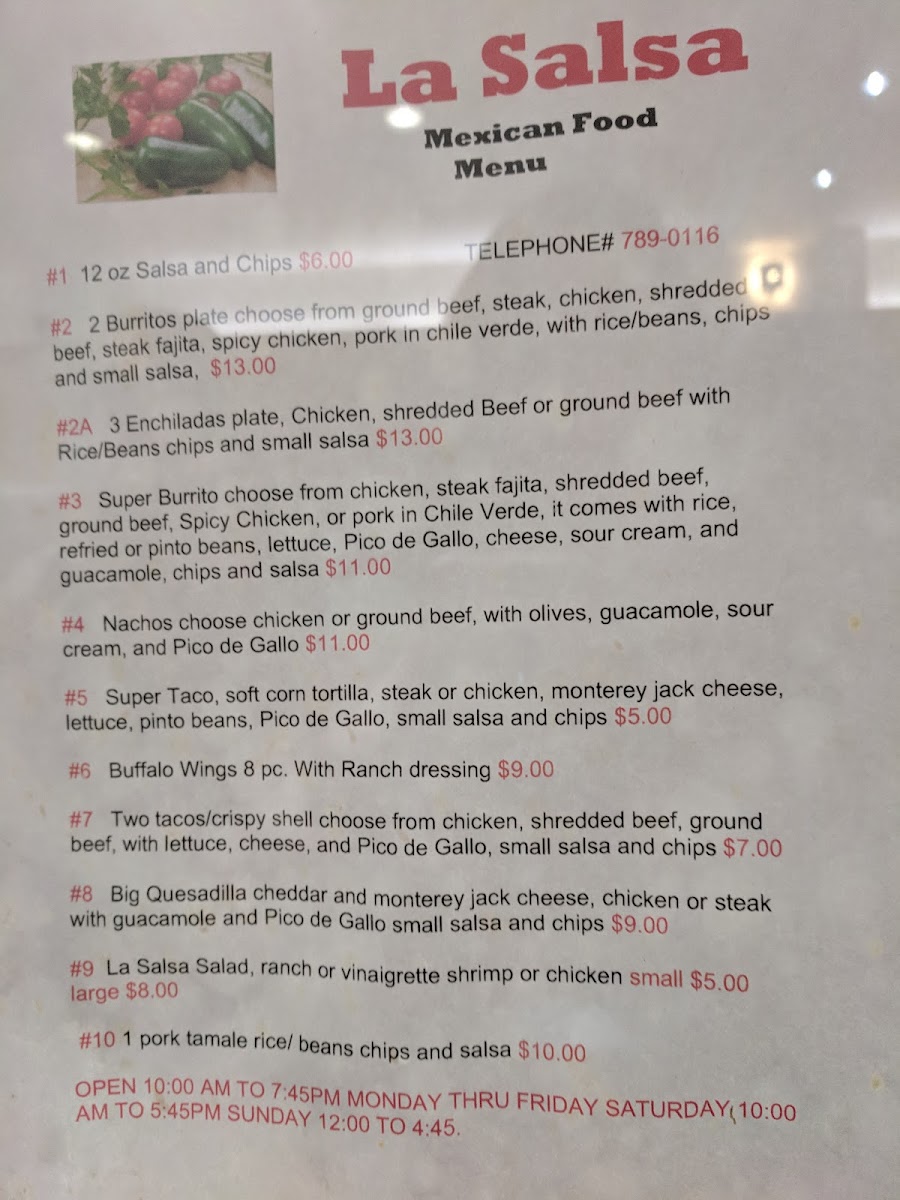 La Salsa
Mexican Food
Menu
#1 12 oz Salsa and Chips $6.00
TELEPHONE# 789-0116
#2 2 Burritos plate choose from ground beef, steak, chicken, shredded
beef, steak fajita, spicy chicken, pork in chile verde, with rice/beans, chips
and small salsa, $13.00
#2A 3 Enchiladas plate, Chicken, shredded Beef or ground beef with
Rice/Beans chips and small salsa $13.00
#3 Super Burrito choose from chicken, steak fajita, shredded beef,
ground beef, Spicy Chicken, or pork in Chile Verde, it comes with rice,
refried or pinto beans, lettuce, Pico de Gallo, cheese, sour cream, and
guacamole, chips and salsa $11.00
#4 Nachos choose chicken or ground beef, with olives, guacamole, sour
cream, and Pico de Gallo $11.00
#5 Super Taco, soft corn tortilla, steak or chicken, monterey jack cheese,
lettuce, pinto beans, Pico de Gallo, small salsa and chips $5.00
#6 Buffalo Wings 8 pc. With Ranch dressing $9.00
#7 Two tacos/crispy shell choose from chicken, shredded beef, ground
beef, with lettuce, cheese, and Pico de Gallo, small salsa and chips $7.00
#8 Big Quesadilla cheddar and monterey jack cheese, chicken or steak
with guacamole and Pico de Gallo small salsa and chips $9.00
#9 La Salsa Salad, ranch or vinaigrette shrimp or chicken small $5.00
large $8.00
#10 1 pork tamale rice/ beans chips and salsa $10.00
OPEN 10:00 AM TO 7:45PM MONDAY THRU FRIDAY SATURDAY( 10:00
AM TO 5:45PM SUNDAY 12:00 TO 4:45.